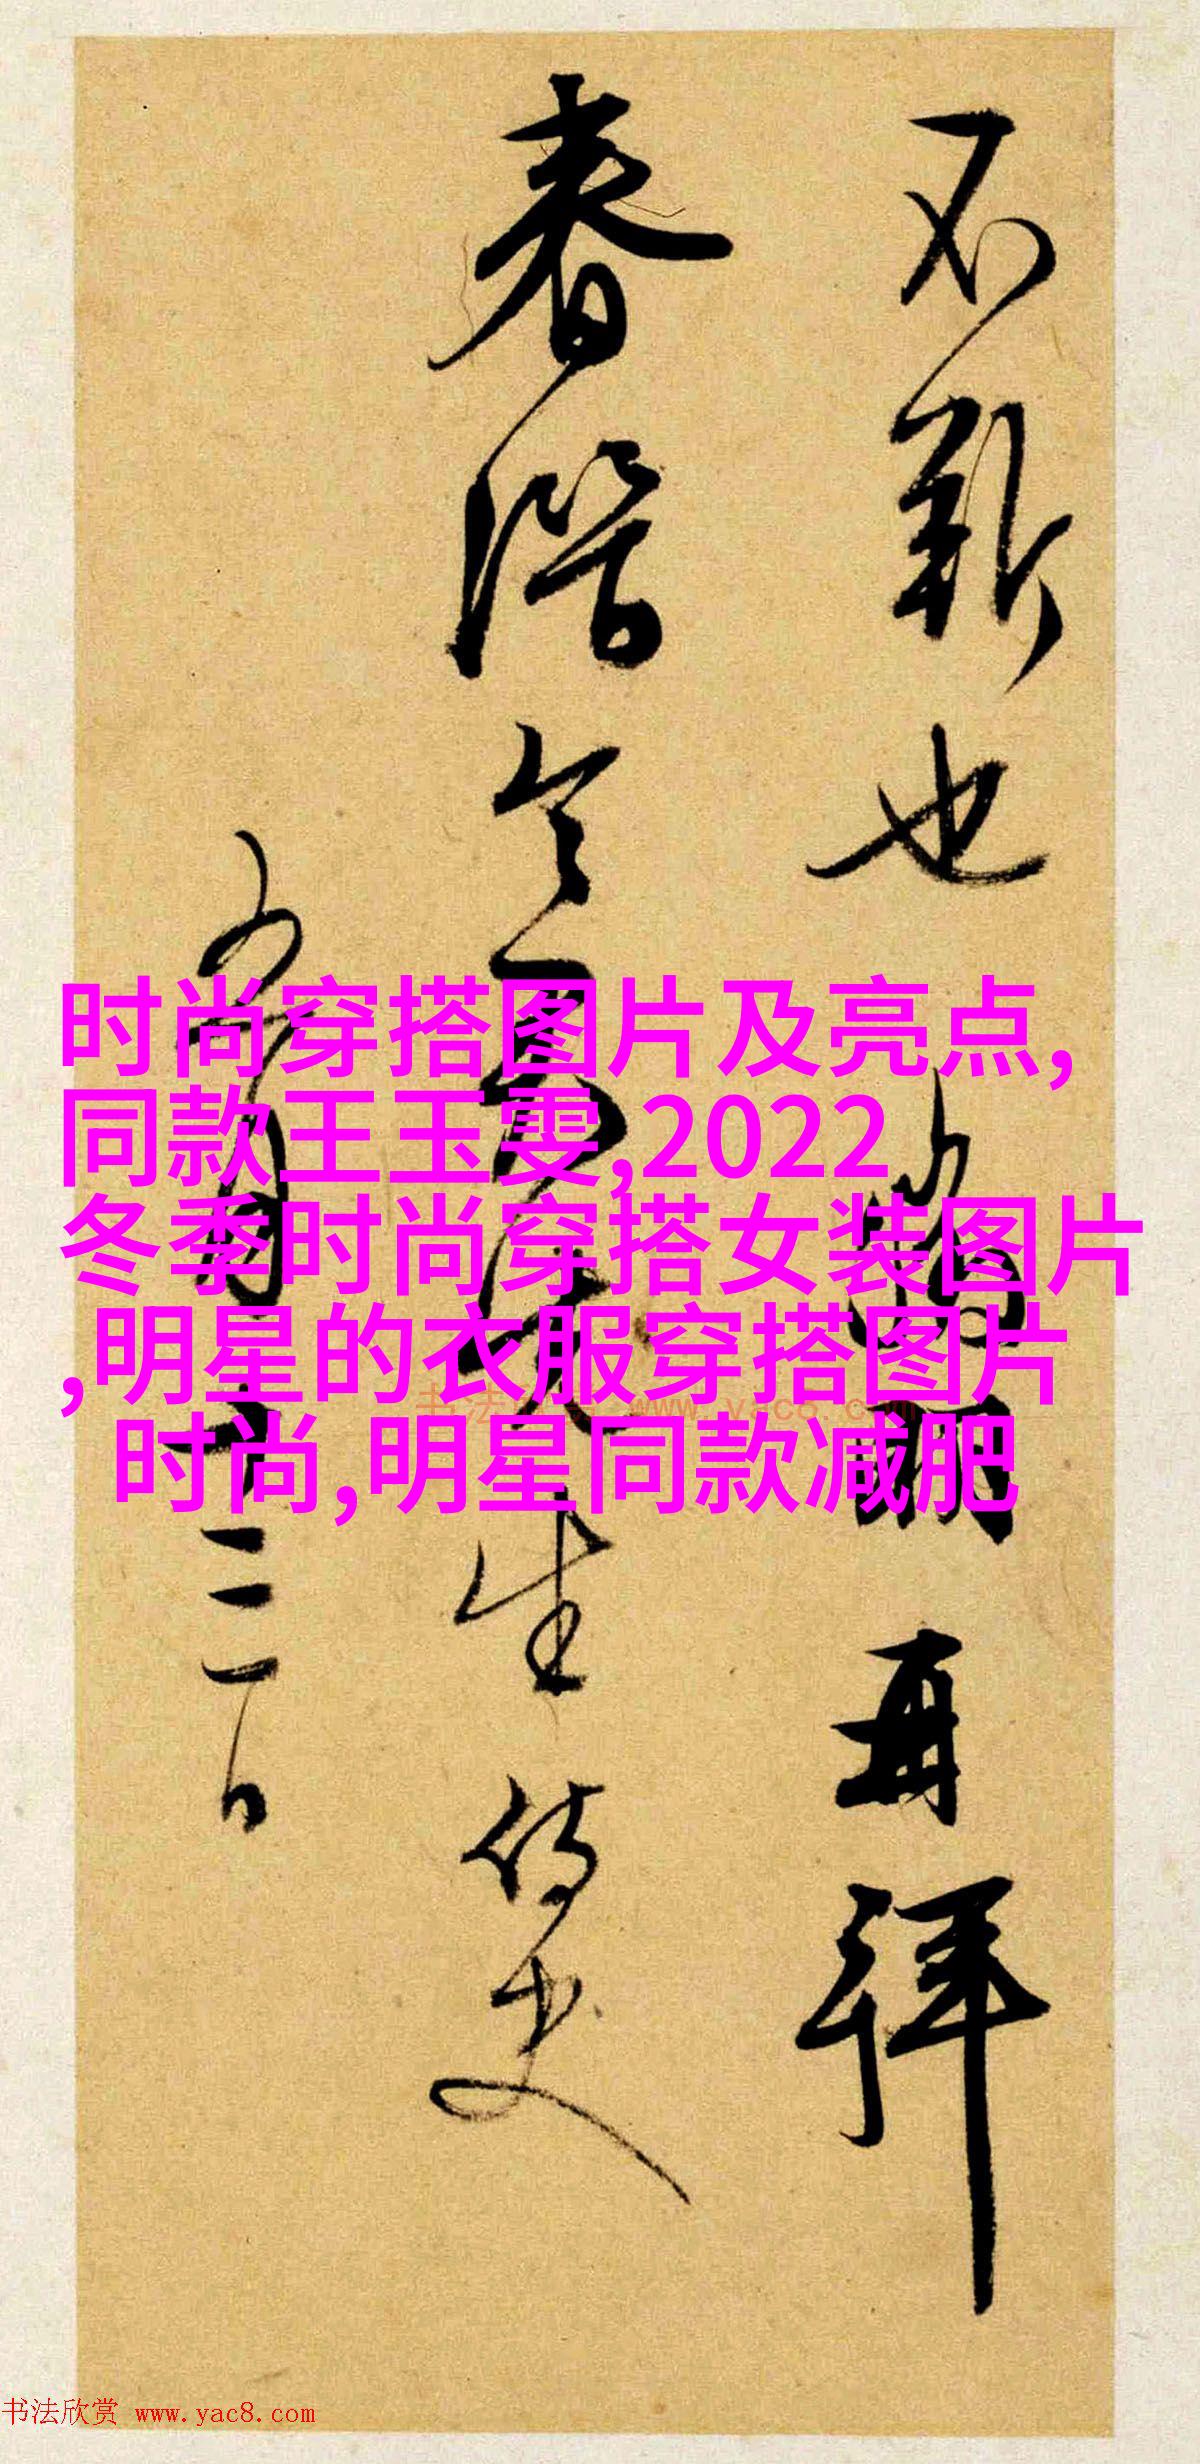 不斲也 再拜
春潛 先生侍史
五月十三日
时尚穿搭图片及亮点,
同款王玉雯,2022
冬季时尚穿搭女装图片
,明星的衣服穿搭图片
时尚,明星同款减肥
书法欣赏 www.yac8.com
书法欣赏 www.yac8.com